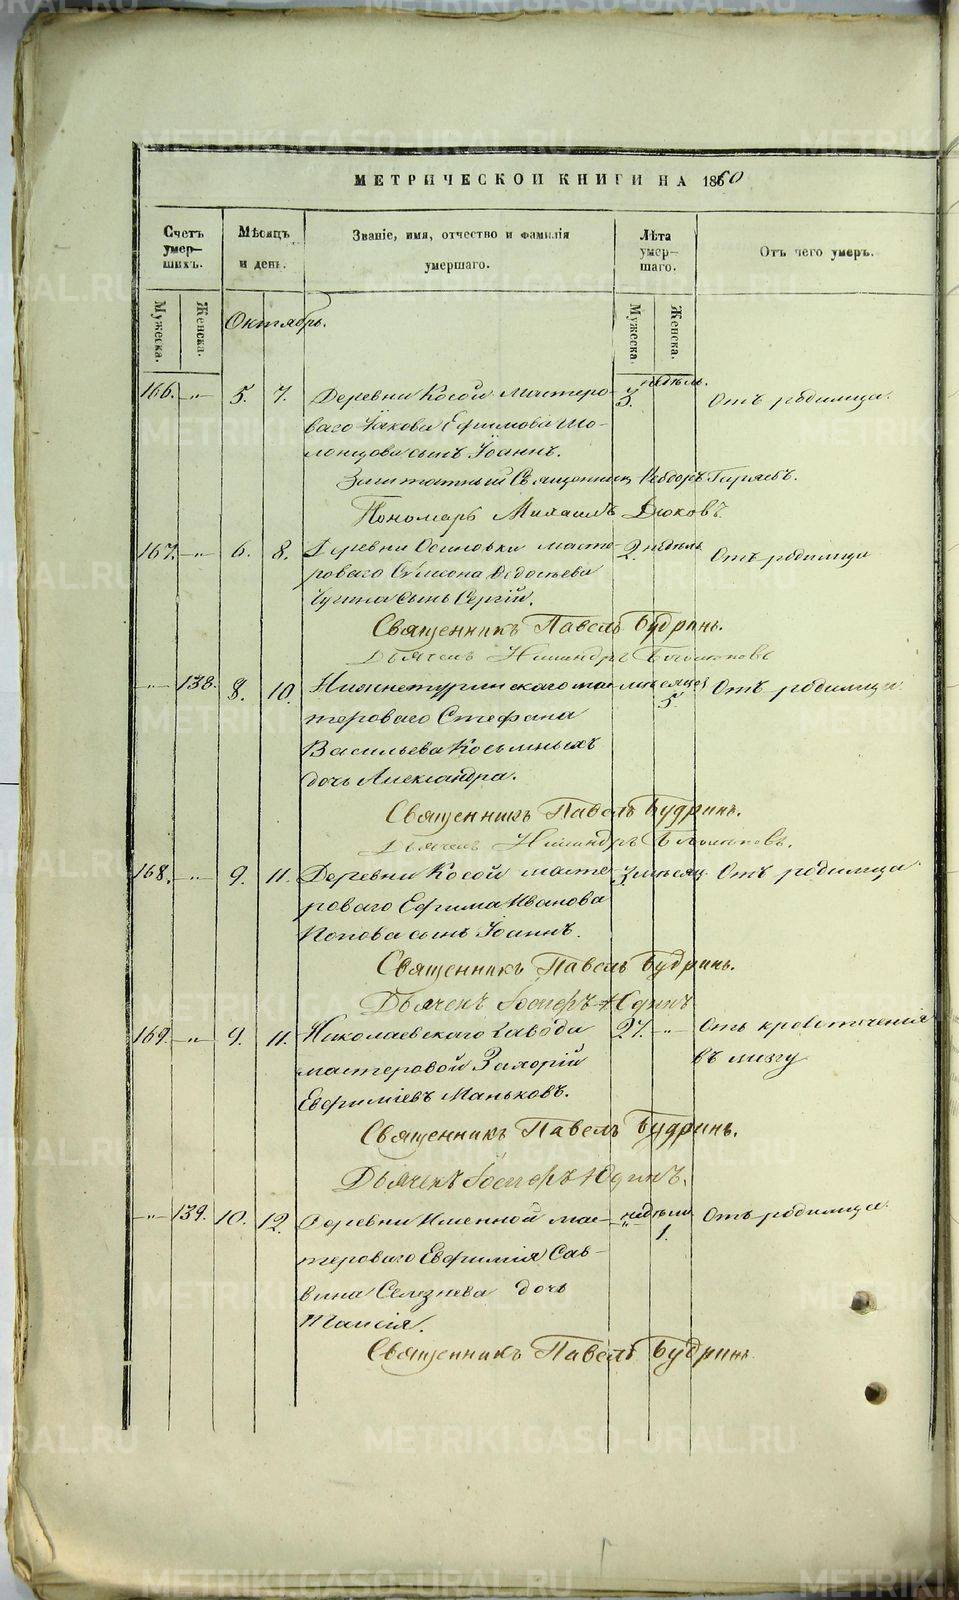 МЕТРИЧЕСКОЙ КНИГИ НА 1860
Счетъ умер-шихъ.
Мѣсяцъ и день.
Званіе, имя, отчество и фамилія умершаго.
Лѣта умер-шаго.
Отъ чего умеръ.
Мужеска.
Женска.
Мужеска.
Женска.
Октябрь.
166. -"- 5. 7. Деревни Косой мастеро- 3 недѣль. Отъ родимца.
ваго Іакова Ефимова
сынъ Іоаннъ.
Заштатный Священникъ Ѳеодоръ
Пономарь Михаилъ Дюковъ.
167. -"- 6. 8. Деревни Осиновки масте- 2 недѣль Отъ родимца
роваго Сѵмеона
сынъ Сергій.
Священникъ Павелъ Будринъ.
Дьячекъ
-"- 138. 8. 10. Нижнетуринскаго мас- мѣсяцев 5. Отъ родимца.
тероваго Стефана
Васильева Косьминыхъ
дочь Александра.
Священникъ Павелъ Будринъ.
Дьячекъ
168. -"- 9. 11. Деревни Косой масте- 3 мѣсяц. Отъ родимца
роваго Ефима Иванова
Попова сынъ Іоаннъ.
Священникъ Павелъ Будринъ.
Дьячекъ Іосифъ Юдинъ
169. -"- 9. 11. Николаевскаго завода 27. -"- Отъ кровотеченія
мастеровой Захорій въ мозгу
Евфиміевъ Маньковъ.
Священникъ Павелъ Будринъ.
Дьячекъ Іосифъ Юдинъ.
-"- 139. 10. 12. Деревни Именной мас- недѣли 1. Отъ родимца.
тероваго Евфимія Сав-
вина Селезнева дочь
Таисія.
Священникъ Павелъ Будринъ
METRIKI.GASO-URAL.RU